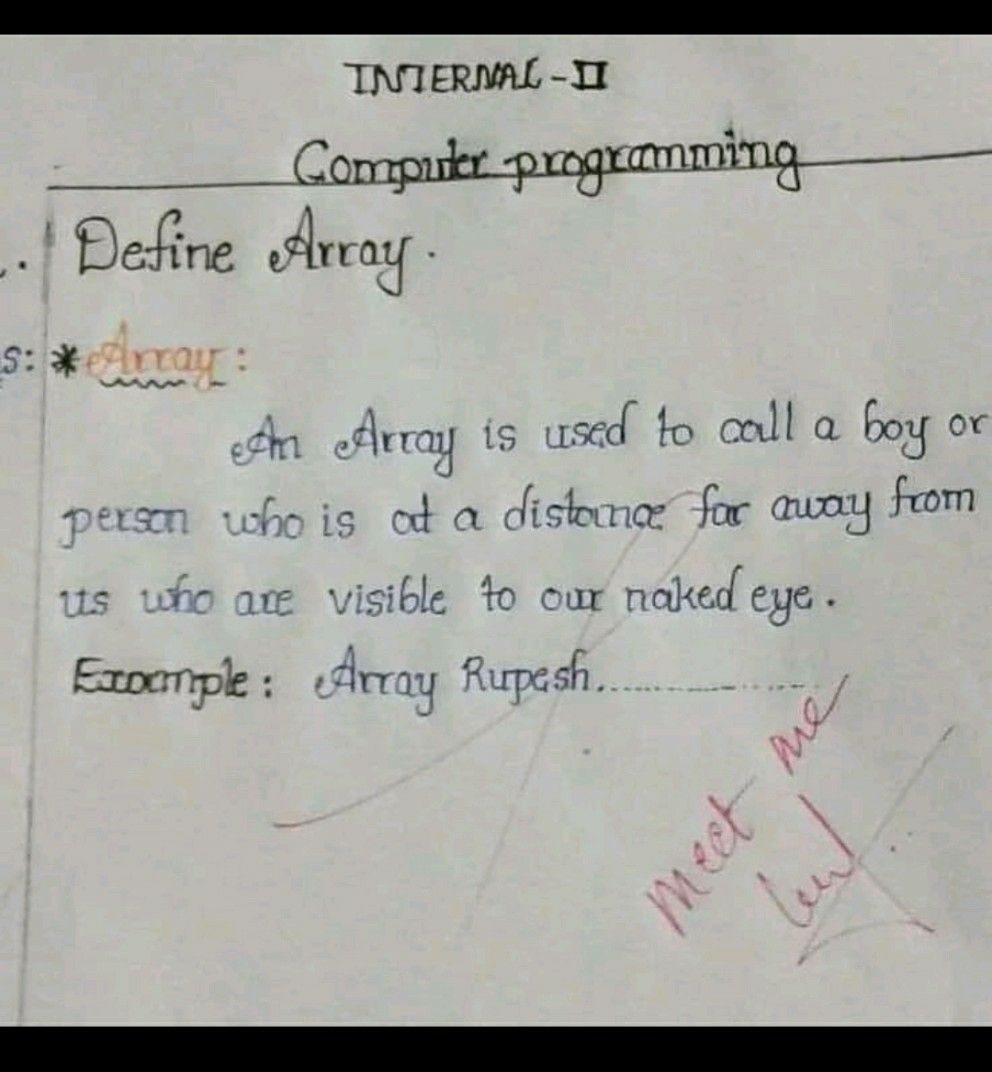 INTERNAL-II
Computer programming
Define Array.
s: *Array:
An Array is used to call a boy or
person who is at a distance far away from
us who are visible to our naked eye.
Example: Array Rupesh..................
meet me